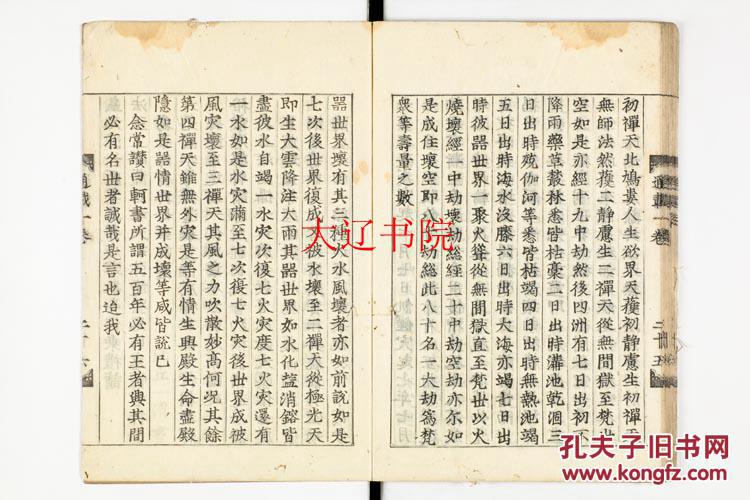 初禪天北鳩婁人生欲界天獲初静慮生初禪天
無師法然獲二静慮生二禪天從無間獄至梵世
空如是亦經十九中劫然後四洲有七日出初不
降雨藥草叢林悉皆枯槁二日出時溝池乾涸三
日出時殑伽河等悉皆枯竭四日出時無熱池竭
五日出時海水沒膝六日出時大海亦竭七日出
時彼器世界一聚火聳從無間獄直至梵世以火
燒壞經一中劫壞劫總經二十中劫空劫亦尔如
是成住壞空即八十劫總此八十名一大劫為梵
衆等壽量之數
通載一卷
二十五
器世界壞有其三種火水風壞者亦如前說如是
七次後世界復成又被水壞至二禪天從極光天
即生大雲降注大雨其器世界如水化盬消鎔皆
盡彼水自竭一水灾次復七火灾度七火灾還有
一水如是水灾滿至七次復七火灾後世界成被
風灾壞至三禪天其風之力吹散妙高何况其餘
第四禪天雖無外灾是等有情生與殿生命盡殿
隱如是器情世界并成壞等咸皆說已
法念常讃曰軻書所謂五百年必有王者興其間
必有名世者誠哉是言也迨我
通載一卷
二十六
大辽书院
孔夫子旧书网
www.kongfz.com